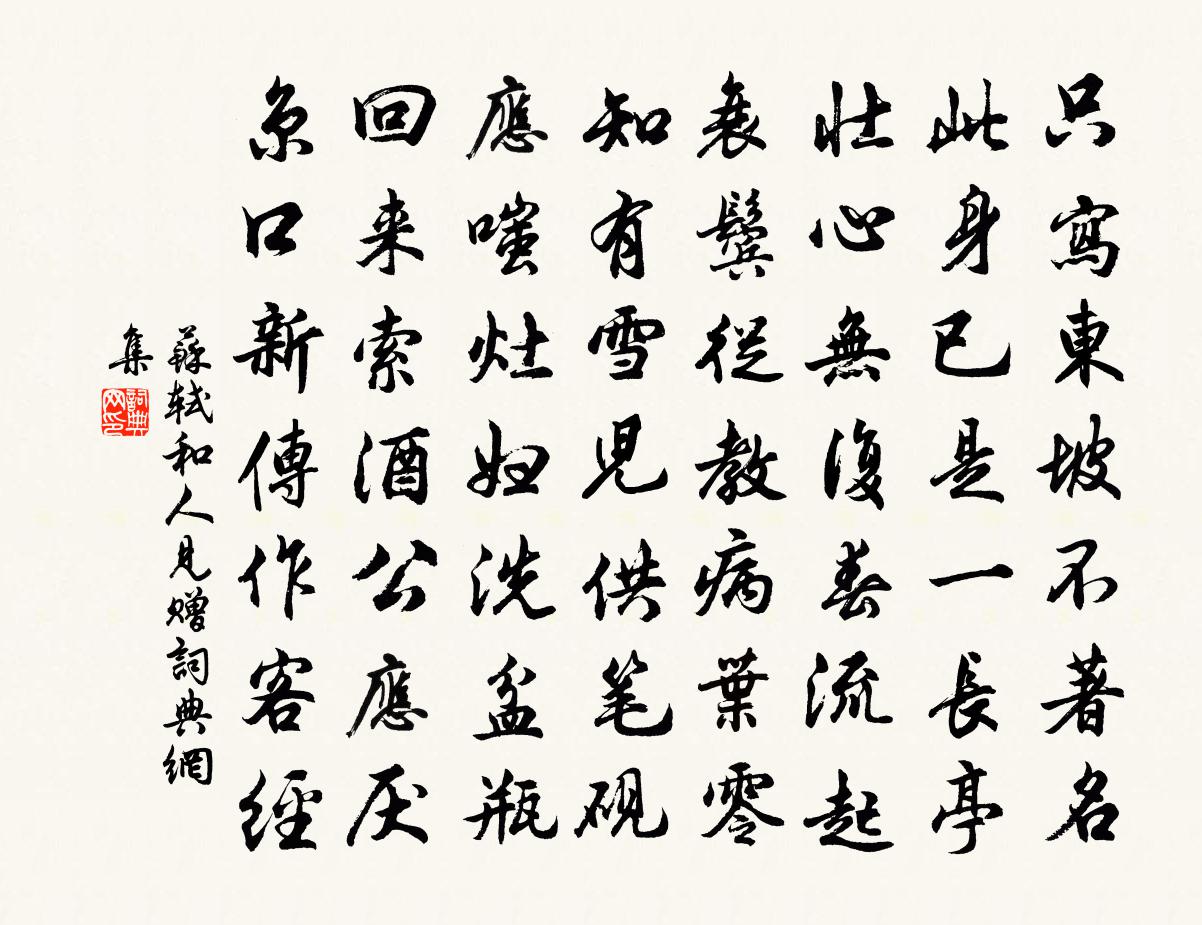 只寫東坡不著名
此身已是一長亭
壮心無復春流起
衰鬢從教病葉零
知有雪児供笔硯
應嗤灶妇洗盆瓶
回来索酒公應厌
京口新傳作客經
蘇軾和人見贈詞典網
集
詞典網印